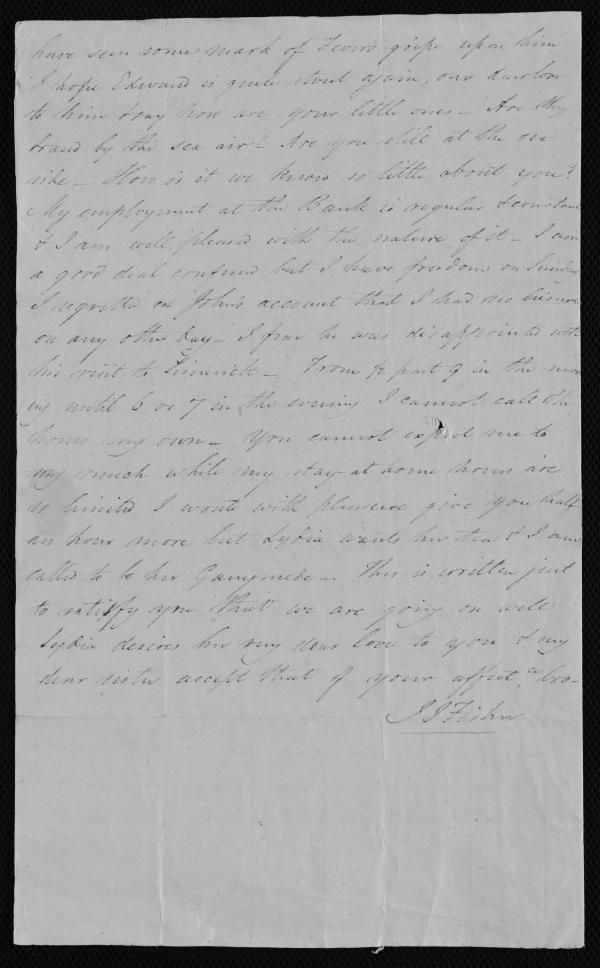 have seen some mark of Fever's gripe upon him
I hope Edward is quite stout again, our dear love
to him & say how are your little ones - Are they
braced by the sea air? Are you still at the sea
side - How is it we know so little about you?
My employment at the Bank is regular & constant
& I am well pleased with the nature of it - I am
a good deal confined but I have freedom on Sunday
I regretted on John's account that I had no leisure
on any other day - I fear he was disappointed with
his visit to Limerick - From ½ past 9 in the morn
ing until 6 or 7 in the evening I cannot call the
hours my own - You cannot expect me to
say much while my stay at home hours are
so limited I would with pleasure give you half
an hour more but Lydia wants her tea & I am
called to be her Ganymede - This is written just
to satisfy you that we are going on well
Lydia desires her very dear love to you & my
dear sister accept that of your affect.te bro-
J J Fisher